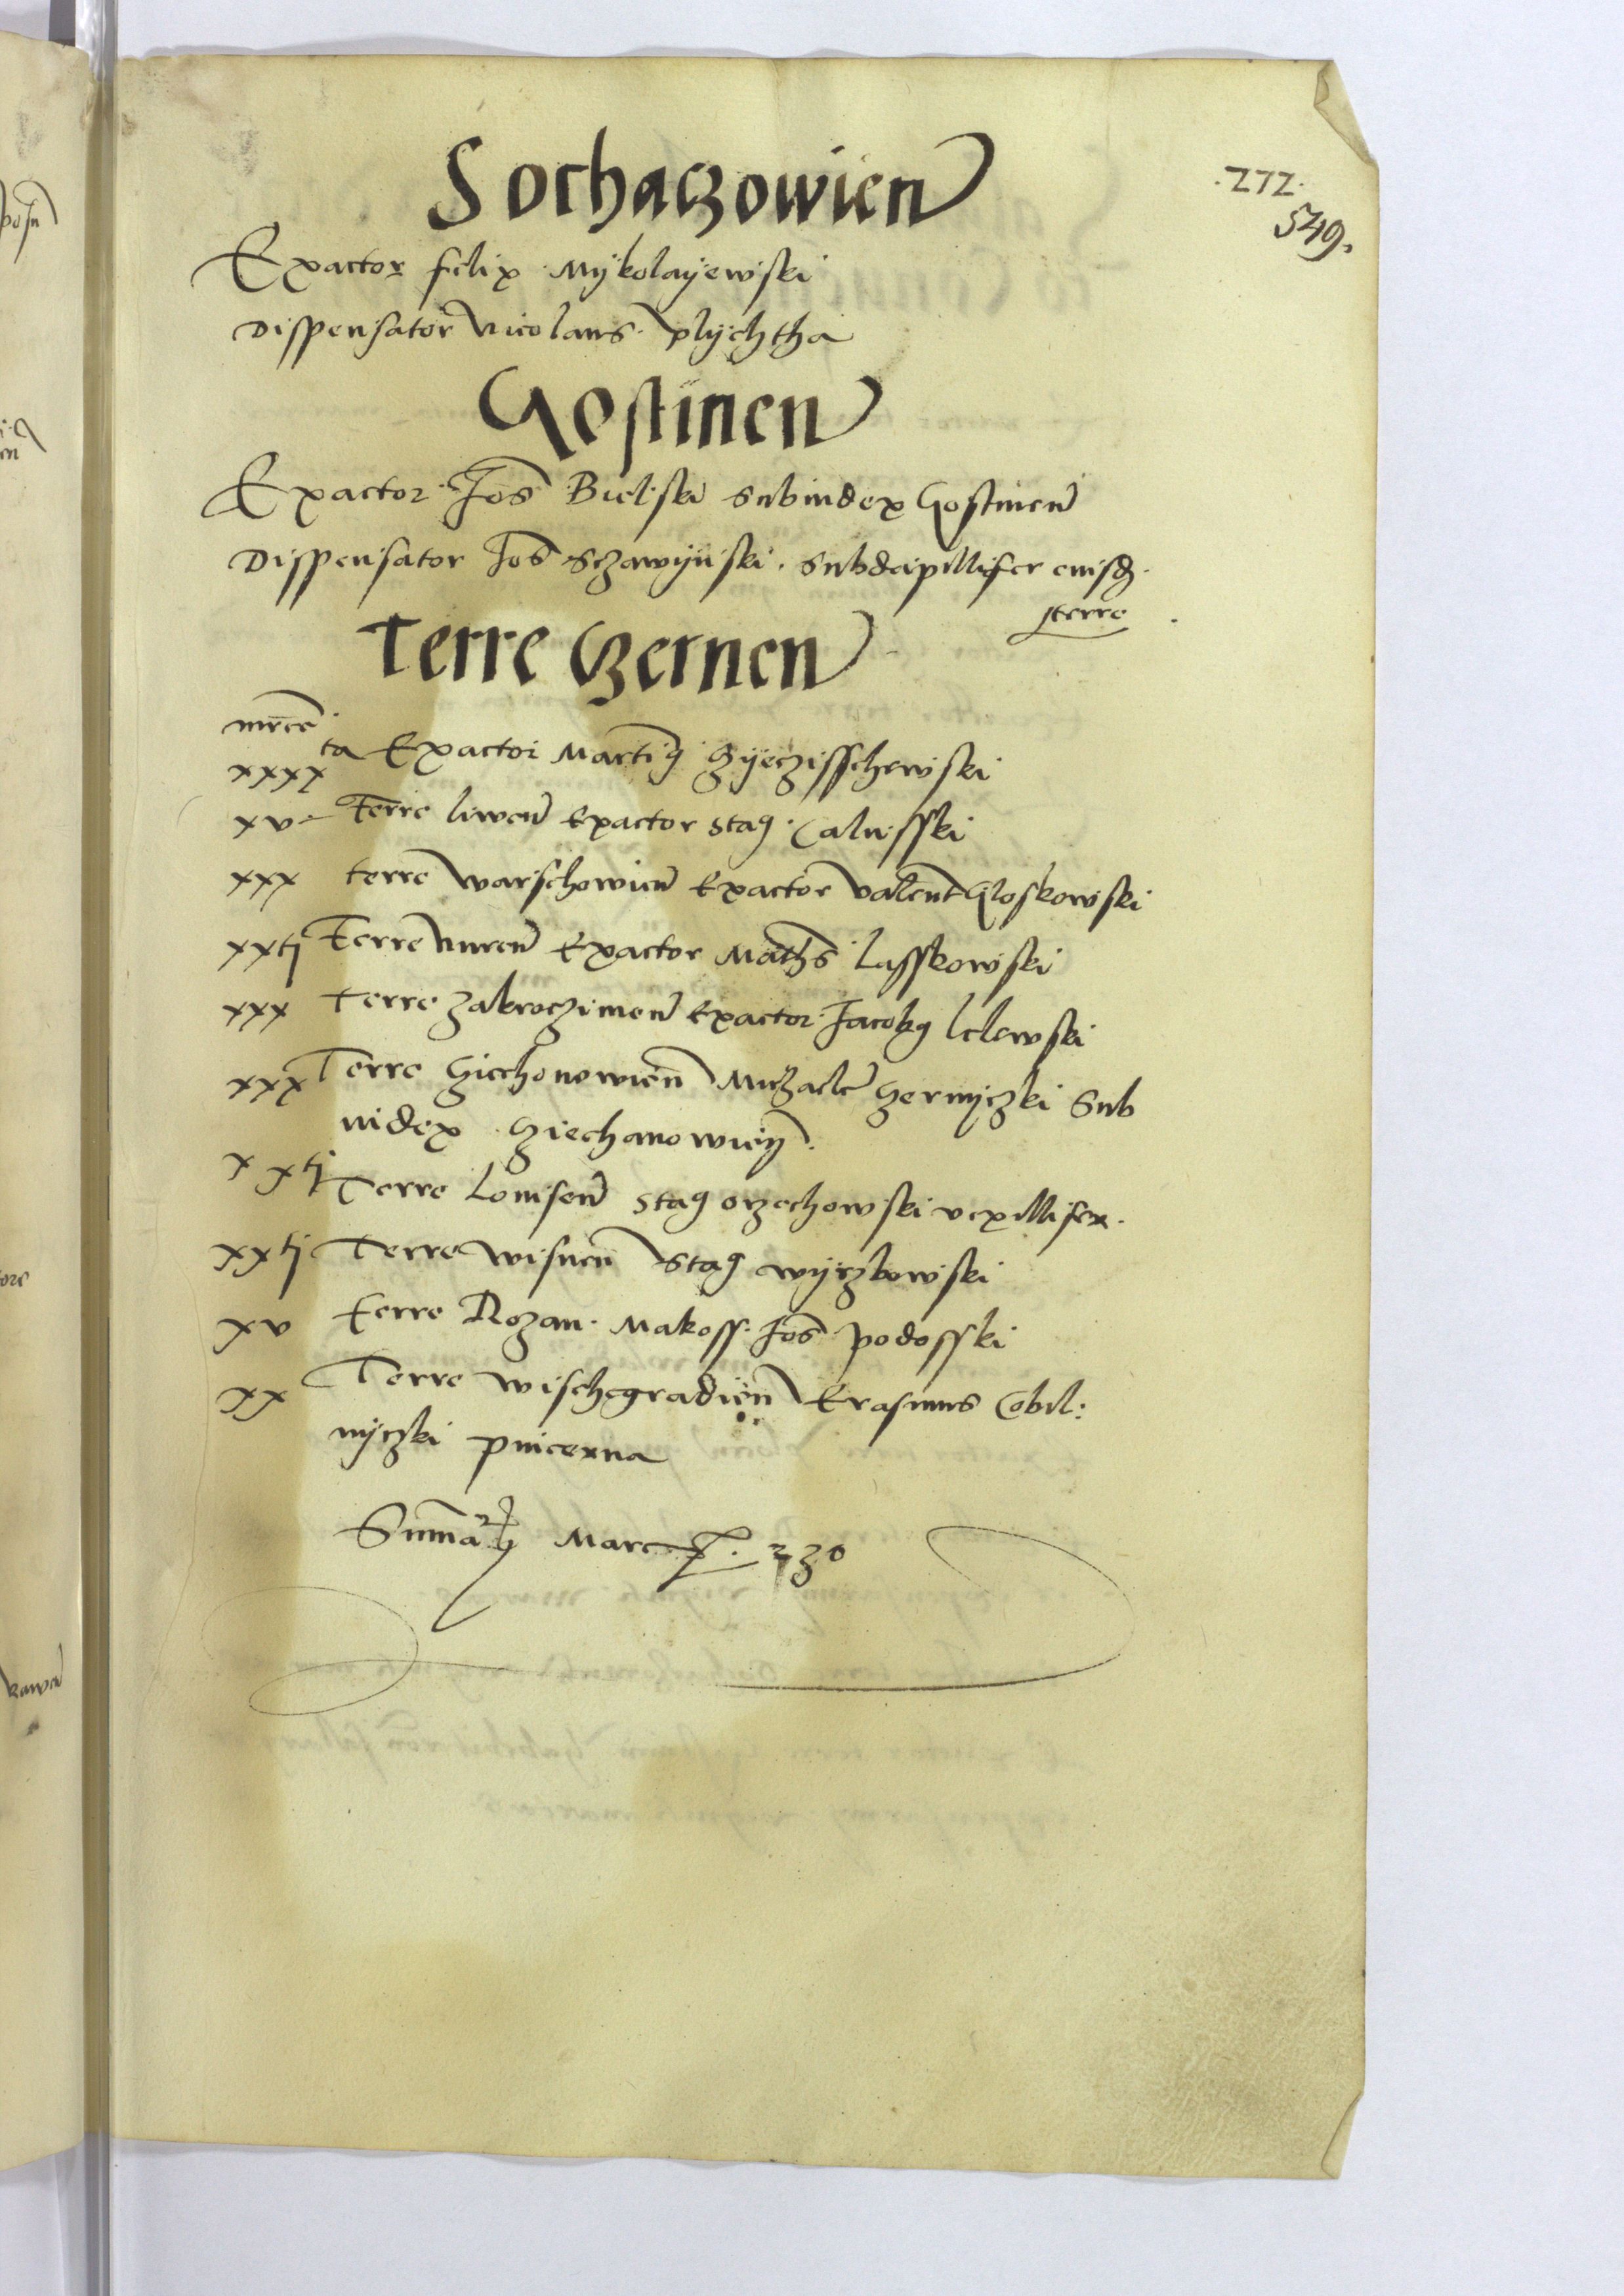 Sochaczowien
.272.
549.
Exactor felix Mykolayewski
Dispensator Nicolaus plychtha
Gostinen
Exactor Jos Bielski Subiudex Gostinen
Dispensator Jos Sczawynski Subdapillifer eiusd.
terre
Terre Czernen
mrce
xxxx ta Exactor Martin9 Czyeczisschewski
xv Terre liwen Exactor Sta9 Calusski
xxx terre warschowien Exactor valent Gloskowski
xxti Terre nuren Exactor Maths Lasskowski
xxx Terre zakroczimen Exactor Jacob9 lelewski
xxx Terre Cziechonowien Michael Czernyczki Sub
iudex Cziechanowien
xxti Terre Lomsen Sta9 orzechowski vexillifer.
xxti Terre wisnen Sta9 wyrzbowski
xv terre Rozan. Makoss. Jos podosski
xx Terre wischegradien Erasmus Cobil:
nyczki pincerna
Summa Marc 230